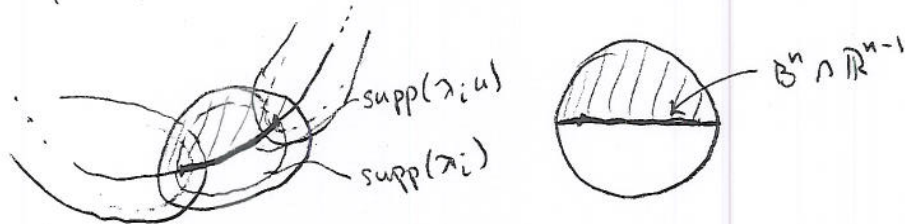 supp(λᵢu)
supp(λᵢ)
Bⁿ ∩ ℝⁿ⁻¹